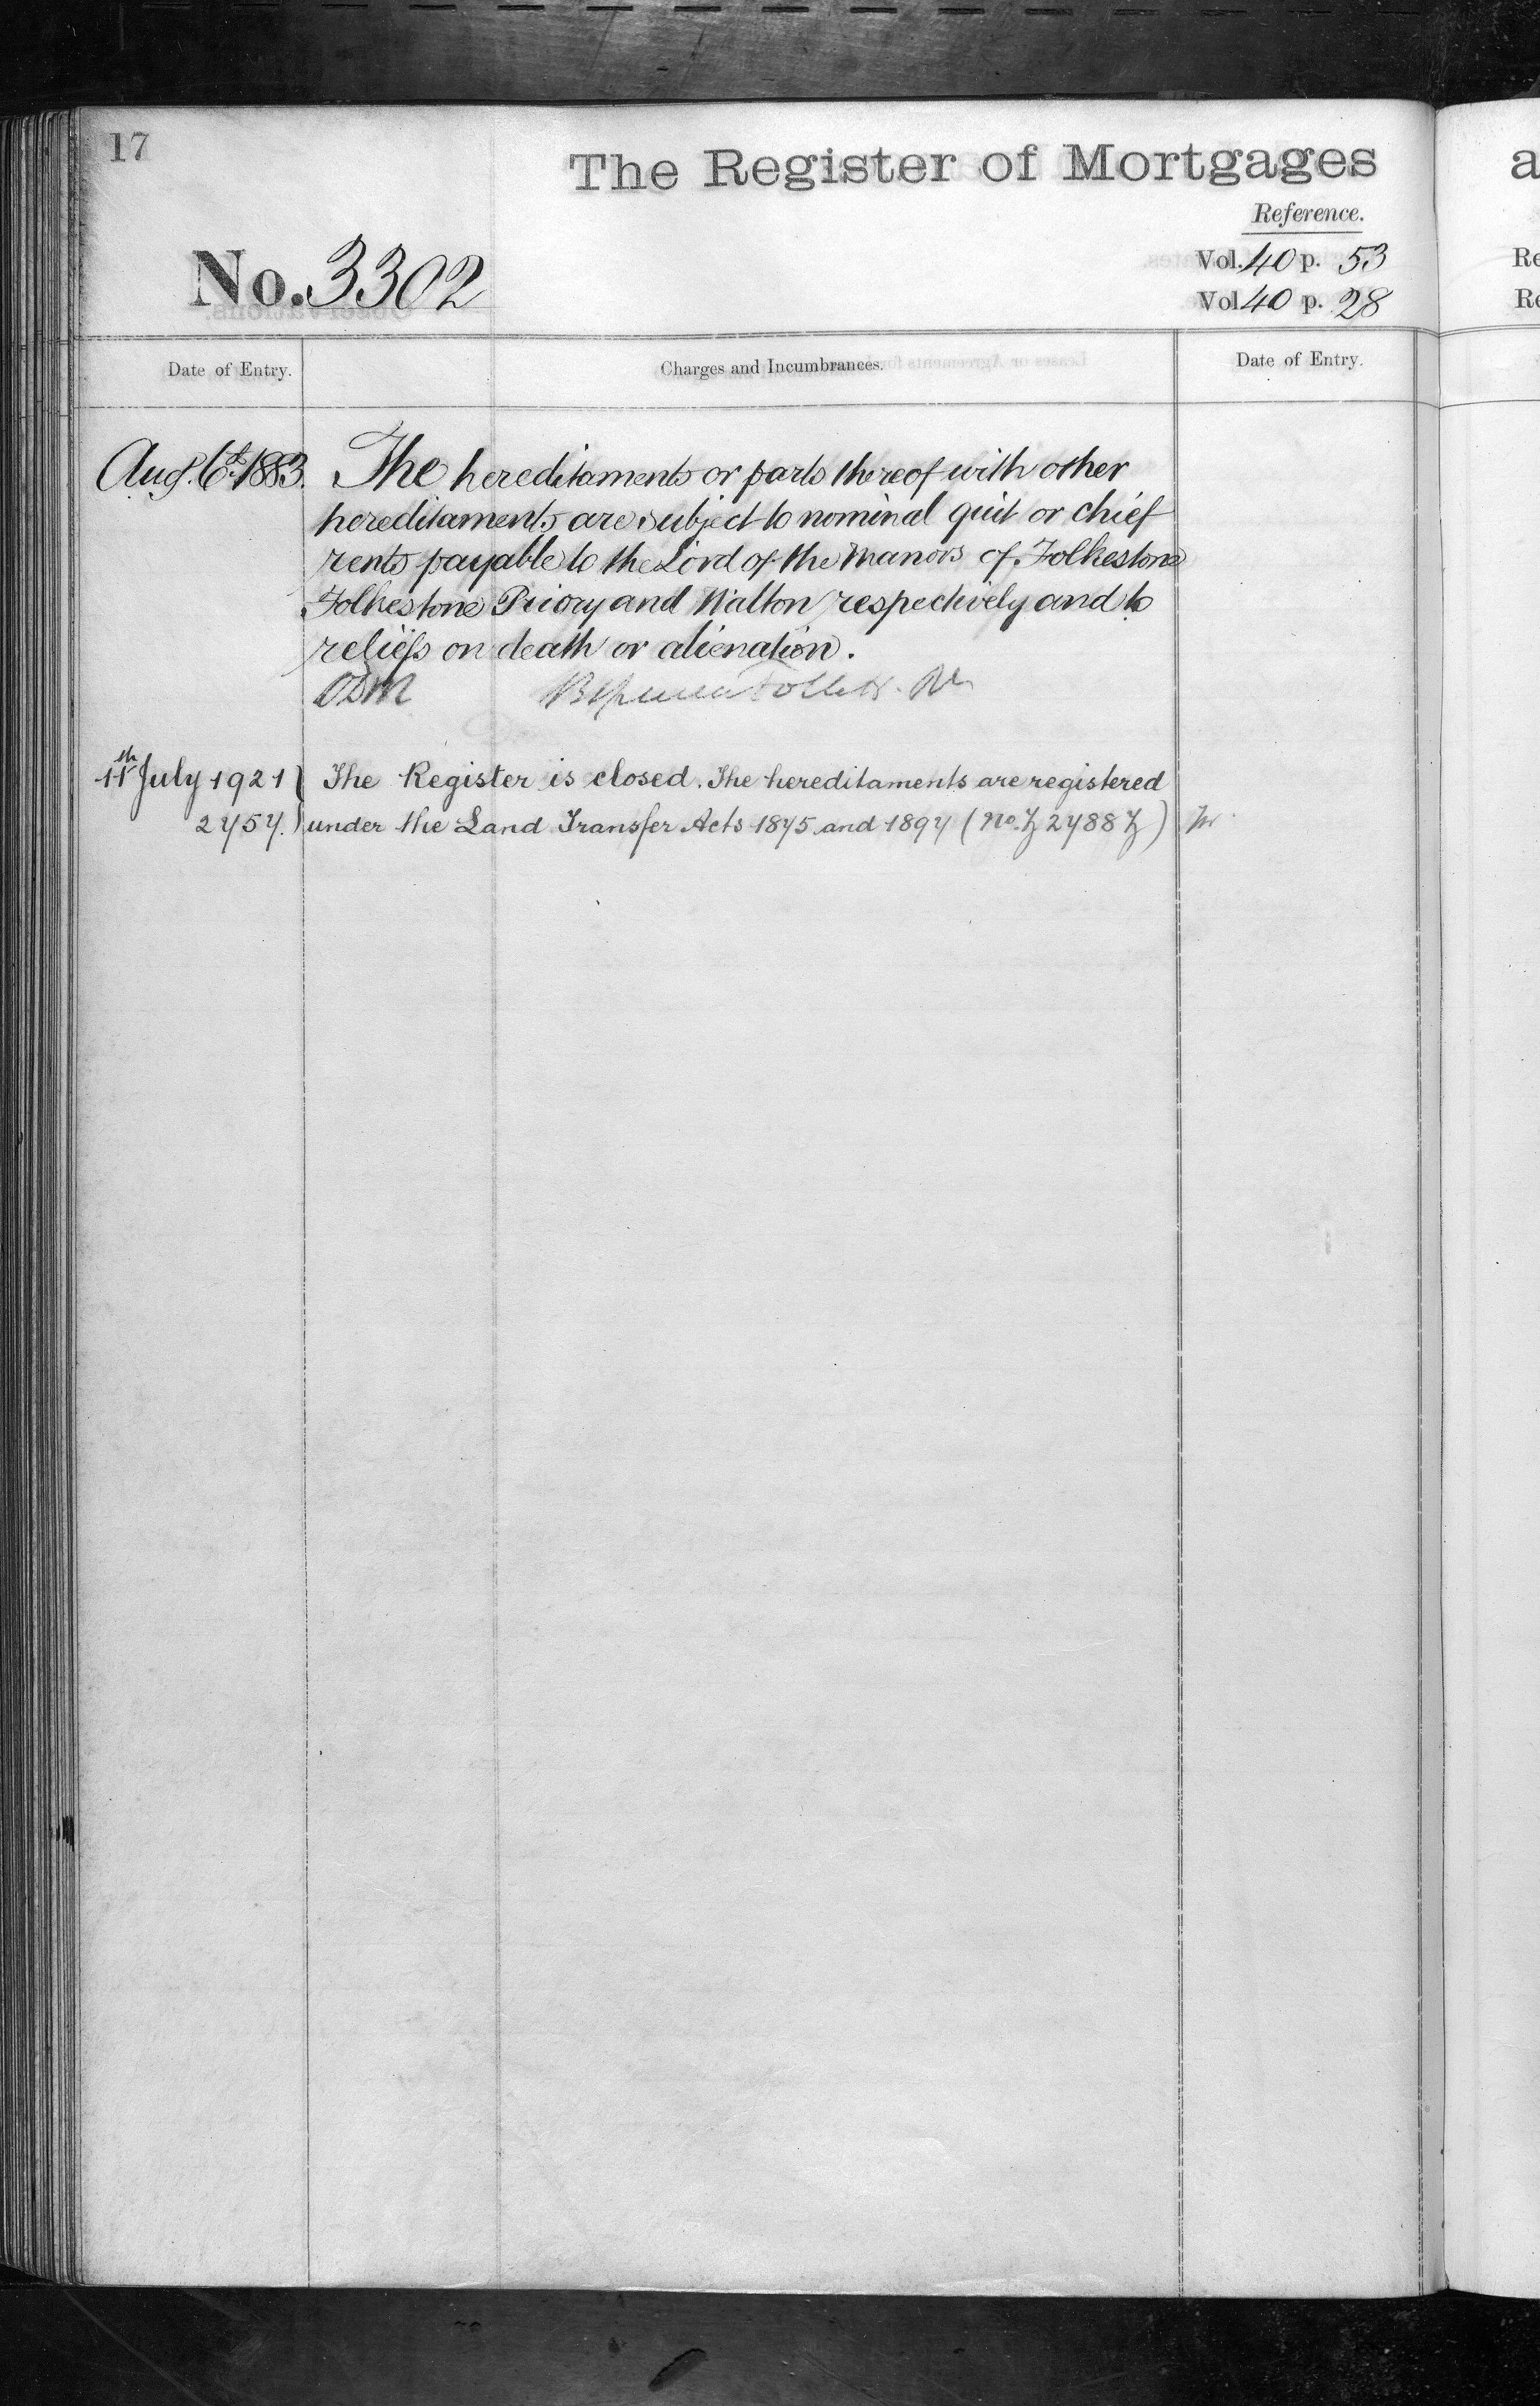 17
The Register of Mortgages
Reference.
No. 3302
Vol. 40 p. 53
Vol 40 p. 28
Date of Entry.
Charges and Incumbrances.
Date of Entry.
Aug. 6th 1883. The hereditaments or parts thereof with other
hereditaments are subject to nominal quit or chief
rents payable to the Lord of the Manors of Folkestone
Folkestone Priory and Walton respectively and to
reliefs on death or alienation.
11th July 1921 The Register is closed. The hereditaments are registered
2757. under the Land Transfer Acts 1875 and 1897 (No.
a
Re
Re